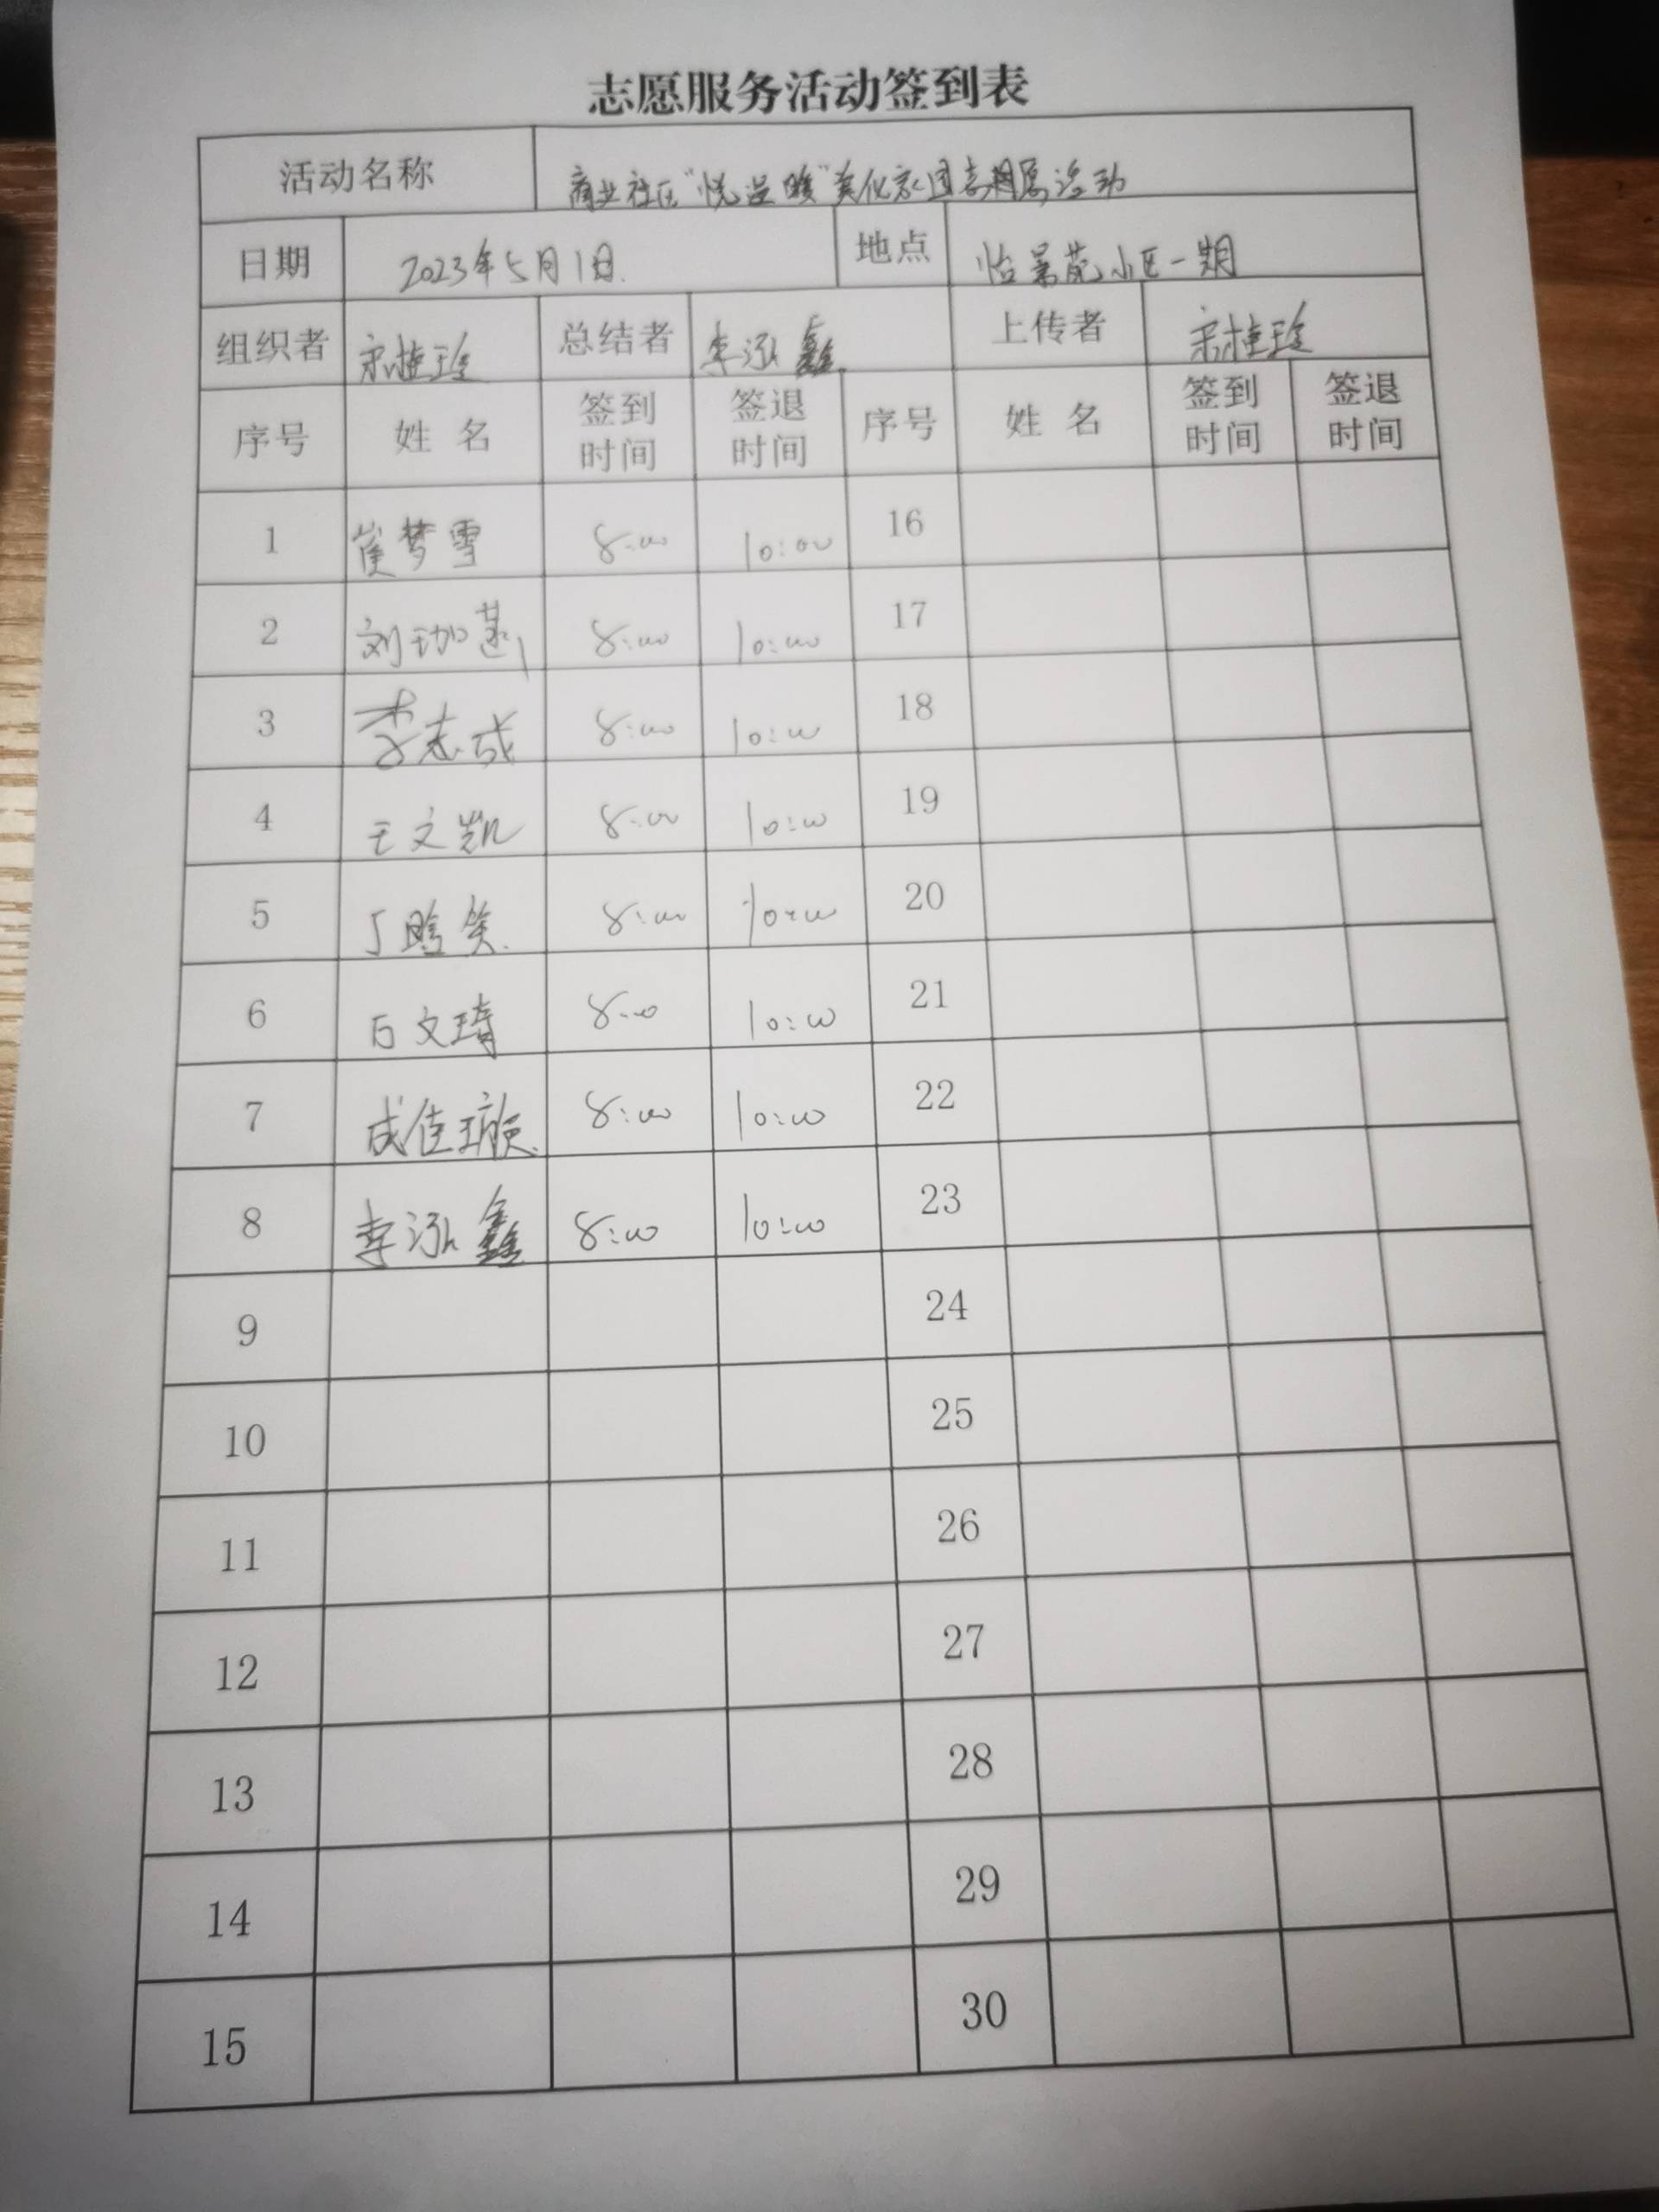 志愿服务活动签到表
活动名称 商业社区"悦 暖"美化家园志愿活动
日期 2023年5月1日. 地点 怡景苑小区一期
组织者 宋 总结者 李泓鑫 上传者 宋
序号 姓名 签到时间 签退时间 序号 姓名 签到时间 签退时间
1 崔梦雪 8:00 10:00 16
2 刘珈 8:00 10:00 17
3 李志成 8:00 10:00 18
4 王文凯 8:00 10:00 19
5 丁晗笑. 8:00 10:00 20
6 石文琦 8:00 10:00 21
7 成佳璇. 8:00 10:00 22
8 李泓鑫 8:00 10:00 23
9 24
10 25
11 26
12 27
13 28
14 29
15 30